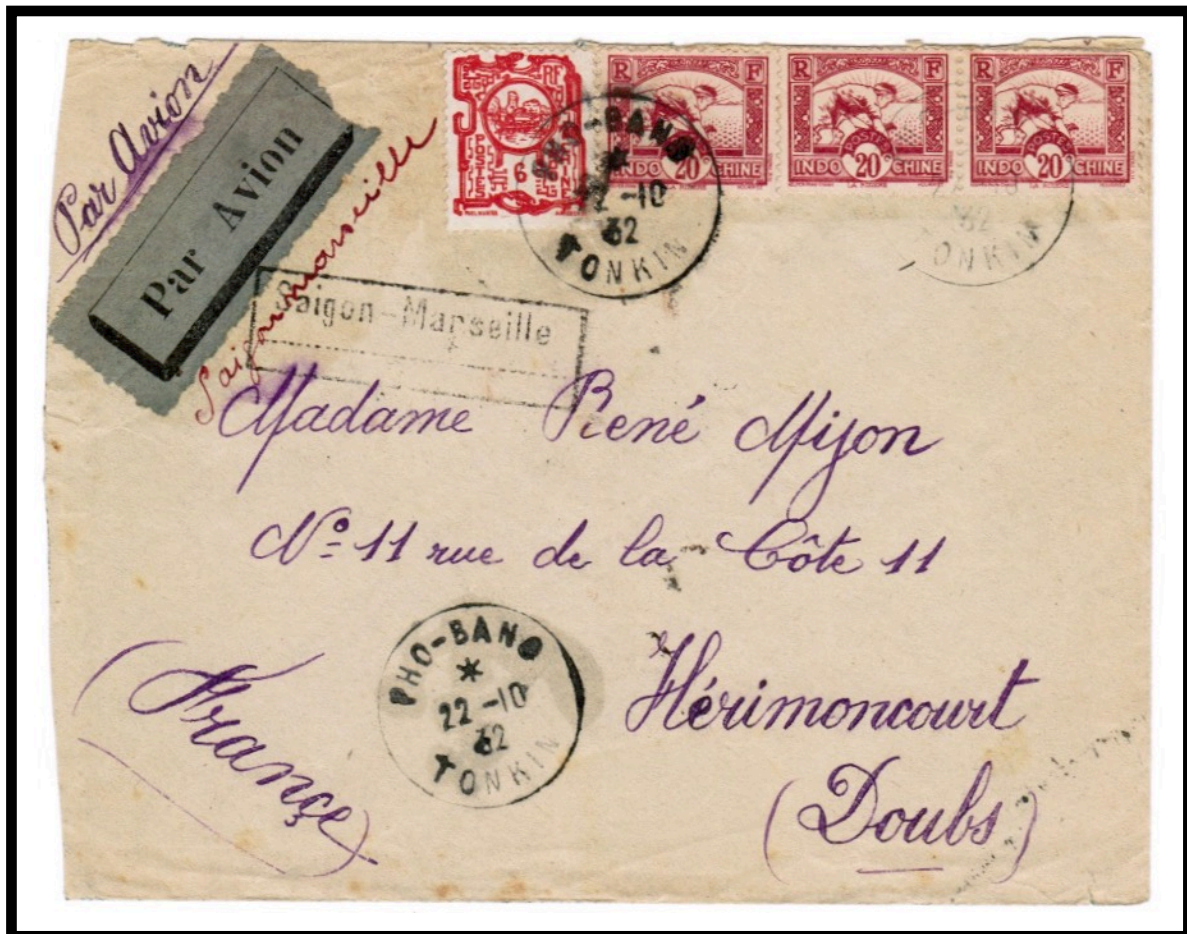 Par Avion
Par Avion
Saigon Marseille
Saigon-Marseille
RF
POSTES
6
R F
POSTES
INDO 20c CHINE
R F
POSTES
INDO 20c CHINE
R F
POSTES
INDO 20c CHINE
PHO-BANG
*
22-10
32
TONKIN
32
ONKIN
Madame René Mijon
N° 11 rue de la Côte 11
Hérimoncourt
(Doubs)
(France)
PHO-BANG
*
22-10
32
TONKIN